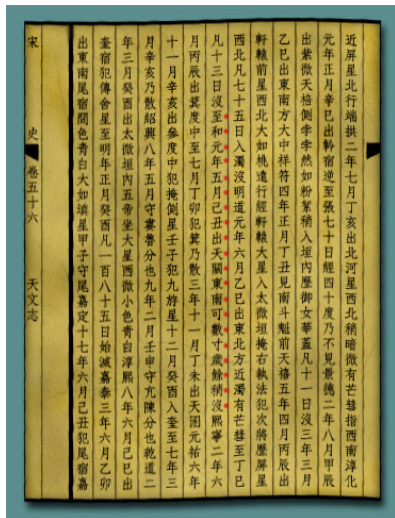 近屏星北行端拱二年七月丁亥出北河星西北稍暗微有芒彗指西南淳化
元年正月辛巳出軫宿逆至張七十日經四十度乃不見景德二年八月甲辰
出紫微天棓側孛孛然如粉絮稍入垣內歷御女華蓋凡十一日沒三年三月
乙巳出東南方大中祥符四年正月丁丑見南斗魁前天禧五年四月丙辰出
軒轅前星西北大如桃速行經軒轅大星入太微垣掩右執法犯次將歷屏星
西北凡七十五日入濁沒明道元年六月乙巳出東北方近濁有芒彗至丁巳
凡十三日沒至和元年五月己丑出天關東南可數寸歲餘稍沒熙寧二年六
月丙辰出箕度中至七月丁卯犯箕乃散三年十一月丁未出天囷元祐六年
十一月辛亥出參度中犯掩側星壬子犯九斿星十二月癸酉入奎至七年三
月辛亥乃散紹興八年五月守婁魯分也九年二月壬申守亢陳分也乾道二
年三月癸酉出太微垣內五帝坐大星西微小色青白淳熙八年六月己巳出
奎宿犯傳舍星至明年正月癸酉凡一百八十五日始滅嘉泰三年六月乙卯
出東南尾宿間色青白大如填星甲子守尾嘉定十七年六月己丑犯尾宿嘉
宋 史 卷五十六 天文志